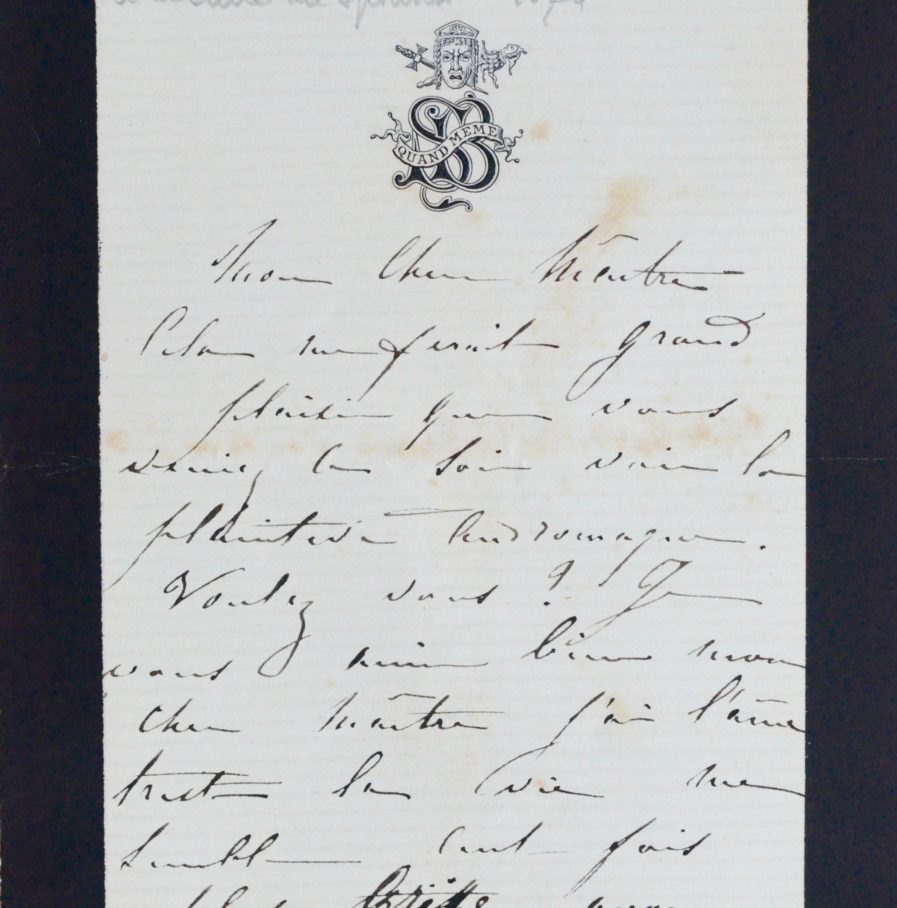 SB
QUAND MEME
Mon Cher Maître
Cela me ferait grand
plaisir que vous
veniez ce soir voir la
plaintive Andromaque.
Voulez vous ? Je
vous aime bien mon
cher maître j'ai l'âme
triste la vie me
semble cent fois
plus triste